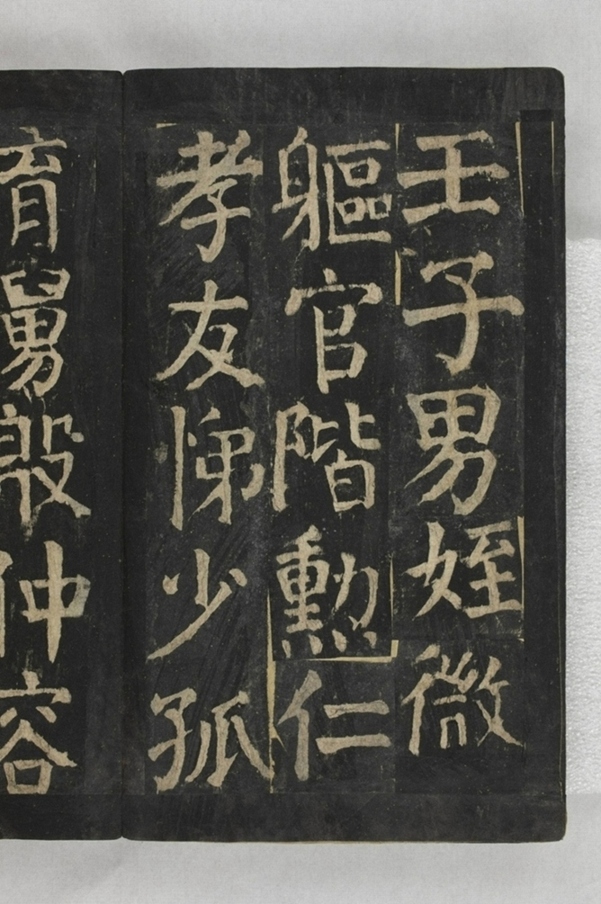 壬子男姪微
軀官階勲仁
孝友悌少孤
育舅殷仲容